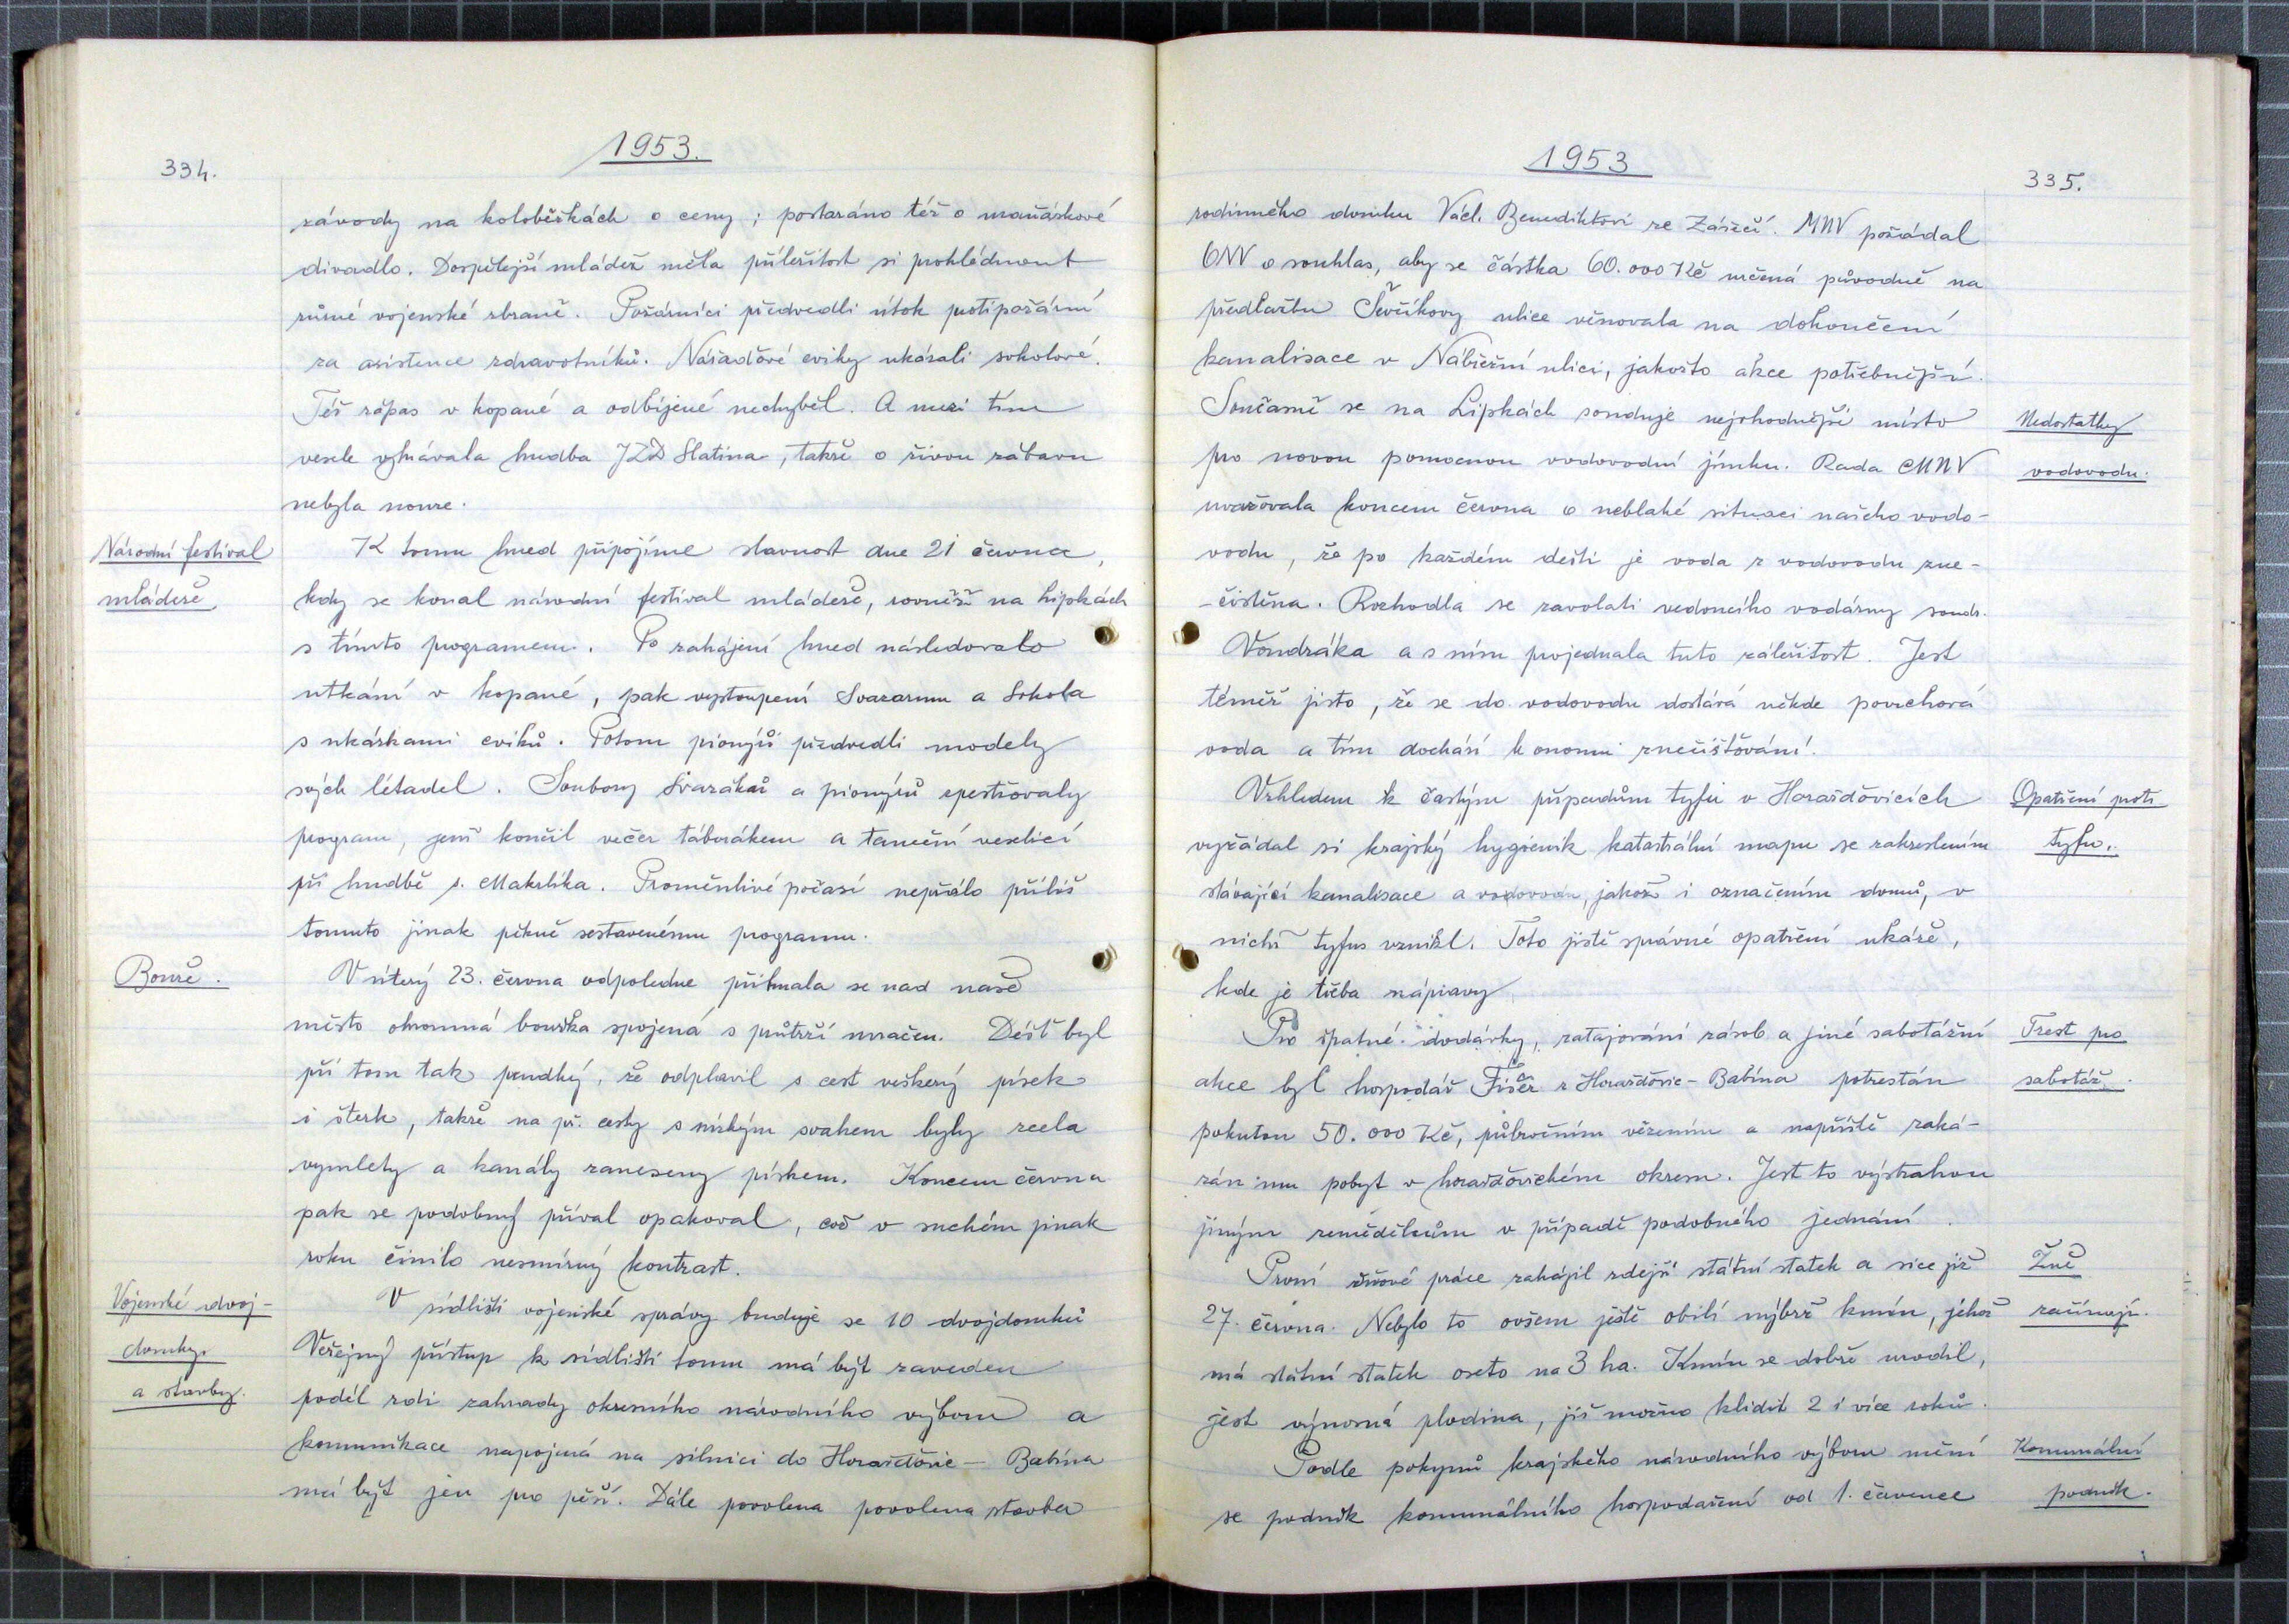 334.
1953.
závody na koloběžkách o ceny; postaráno též o maňáskové
divadlo. Dospělejší mládež měla příležitost si prohlédnout
různé vojenské zbraně. Požárníci předvedli útok protipožární
za asistence zdravotníků. Nářaďové cviky ukázali sokolové.
Též zápas v kopané a odbíjené nechyběl. A mezi tím
vesele vyhrávala hudba JZD Slatina, takže o živou zábavu
nebyla nouze.
Národní festival
mládeže.
K tomu hned připojíme slavnost dne 21 června,
kdy se konal národní festival mládeže, rovněž na Lipkách
s tímto programem. Po zahájení hned následovalo
utkání v kopané, pak vystoupení Svazarmu a Sokola
s ukázkami cviků. Potom pionýři předvedli modely
svých létadel. Soubory Svazáků a pionýrů zpestřovaly
program, jenž končil večer táborákem a taneční veselicí
při hudbě s. Makrlíka. Proměnlivé počasí nepřálo příliš
tomuto jinak pěkně sestavenému programu.
Bouře.
V úterý 23. června odpoledne přihnala se nad naše
město ohromná bouřka spojená s průtrží mračen. Déšť byl
při tom tak prudký, že odplavil s cest veškerý písek
i šterk, takže na př. cesty s nízkým svahem byly zcela
vymlety a kanály zaneseny pískem. Koncem června
pak se podobný příval opakoval, což v suchém jinak
roku činilo nesmírný kontrast.
Vojenské dvoj-
domky.
a stavby.
V sídlišti vojenské správy buduje se 10 dvojdomků
Veřejný přístup k sídlišti tomu má být zaveden
podél zdi zahrady okresního národního výboru a
komunikace napojená na silnici do Horažďovic - Babína
má být jen pro pěší. Dále povolena povolena stavba
1953
335.
rodinného domku Václ. Benediktovi ze Zářečí. MNV požádal
ONV o souhlas, aby se částka 60.000 Kč určená původně na
předlažbu Ševčíkovy ulice věnovala na dokončení
kanalisace v Nábřežní ulici, jakožto akce potřebnější.
Současně se na Lipkách sonduje nejvhodnější místo
pro novou pomocnou vodovodní jímku. Rada MNV
uvažovala koncem června o neblahé situaci našeho vodo-
vodu, že po každém dešti je voda z vodovodu zne-
-čistěna. Rozhodla se zavolati vedoucího vodárny soudr.
Vondráka a s ním projednala tuto záležitost. Jest
téměř jisto, že se do vodovodu dostává někde povrchová
voda a tím dochází k onomu znečišťování.
Nedostatky
vodovodu.
Vzhledem k častým případům tyfu v Horažďovicích
vyžádal si krajský hygienik katastrální mapu se zakreslením
stávající kanalisace a vodovodu, jakož i označením domů, v
nichž tyfus vznikl. Toto jistě správné opatření ukáže,
kde je třeba nápravy
Opatření proti
tyfu.
Pro špatné dodávky, zatajování zásob a jiné sabotážní
akce byl hospodář Fišer z Horažďovic-Babína potrestán
pokutou 50.000 Kč, půlročním vězením a napříště zaká-
zán mu pobyt v horažďovickém okrese. Jest to výstrahou
jiným zemědělcům v případě podobného jednání.
Trest pro
sabotáž.
První žňové práce zahájil zdejší státní statek a sice již
27. června. Nebylo to ovšem ještě obilí nýbrž kmín, jehož
má státní statek oseto na 3 ha. Kmín se dobře urodil,
jest výnosná plodina, již možno klidit 2 i více roků.
Žně
začínají.
Podle pokynů krajského národního výboru mění
se podnik komunálního hospodaření od 1. července
Komunální
podnik.